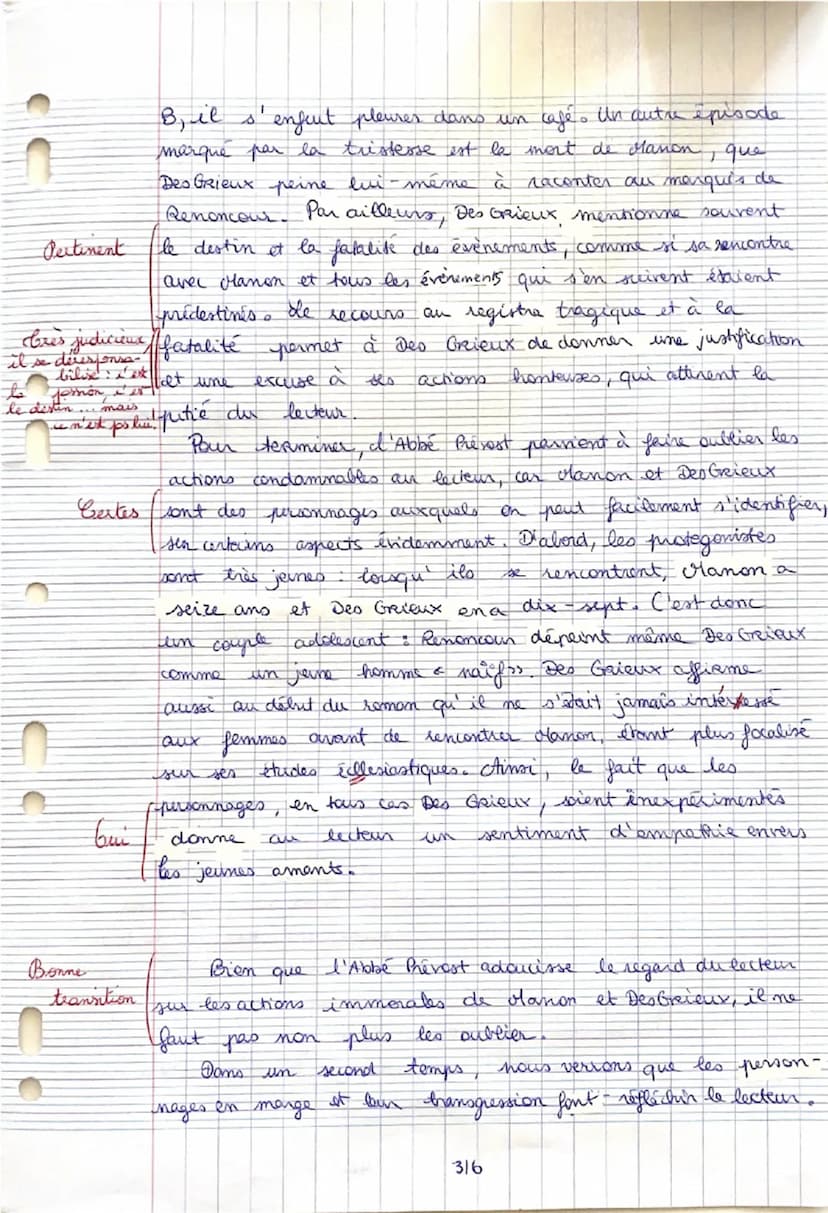 B, il s'enfuit pleurer dans un café. Un autre épisode
marqué par la tristesse est la mort de Manon, que
Des Grieux peine lui-même à raconter au marquis de
Renoncour. Par ailleurs, Des Grieux mentionne souvent
Pertinent
le destin et la fatalité des évènements, comme si sa rencontre
avec Manon et tous les évènements qui s'en suivent étaient
prédestinés. Le recours au registre tragique et à la
Très judicieux
il se déresponsa-
bilise : c'est
la passion, c'est
le destin... mais
ce n'est pas lui!
fatalité permet à Des Grieux de donner une justification
et une excuse à ses actions honteuses, qui attirent la
pitié du lecteur.
Pour terminer, l'Abbé Prévost parvient à faire oublier les
actions condamnables au lecteur, car Manon et Des Grieux
Certes
sont des personnages auxquels on peut facilement s'identifier,
sur certains aspects évidemment. D'abord, les protagonistes
sont très jeunes : lorsqu'ils se rencontrent, Manon a
seize ans et Des Grieux en a dix-sept. C'est donc
un couple adolescent : Renoncour dépeint même Des Grieux
comme un jeune homme « naïf ». Des Grieux affirme
aussi au début du roman qu'il ne s'était jamais intéressé
aux femmes avant de rencontrer Manon, étant plus focalisé
sur ses études écllesiastiques. Ainsi, le fait que les
personnages, en tous cas Des Grieux, soient inexpérimentés
Oui
donne au lecteur un sentiment d'empathie envers
les jeunes amants.
Bonne
transition
Bien que l'Abbé Prévost adoucisse le regard du lecteur
sur les actions immorales de Manon et Des Grieux, il ne
faut pas non plus les oublier.
Dans un second temps, nous verrons que les person-
nages en marge et leur transgression font réfléchir le lecteur.
3/6